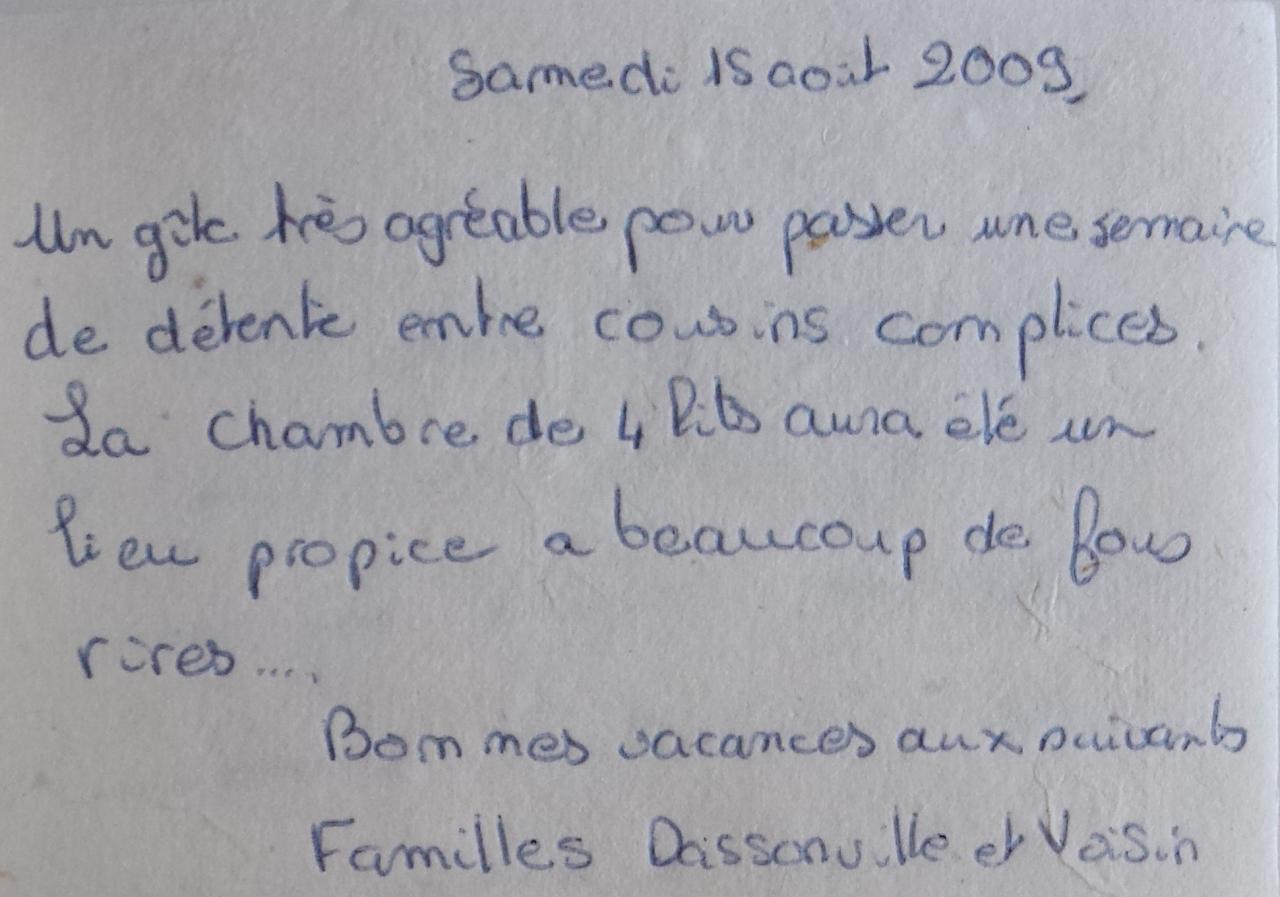 Samedi 15 août 2009,
Un gîte très agréable pour passer une semaine
de détente entre cousins complices.
La chambre de 4 lits aura été un
lieu propice a beaucoup de fous
rires....
Bonnes vacances aux suivants
Familles Dassonville et Voisin